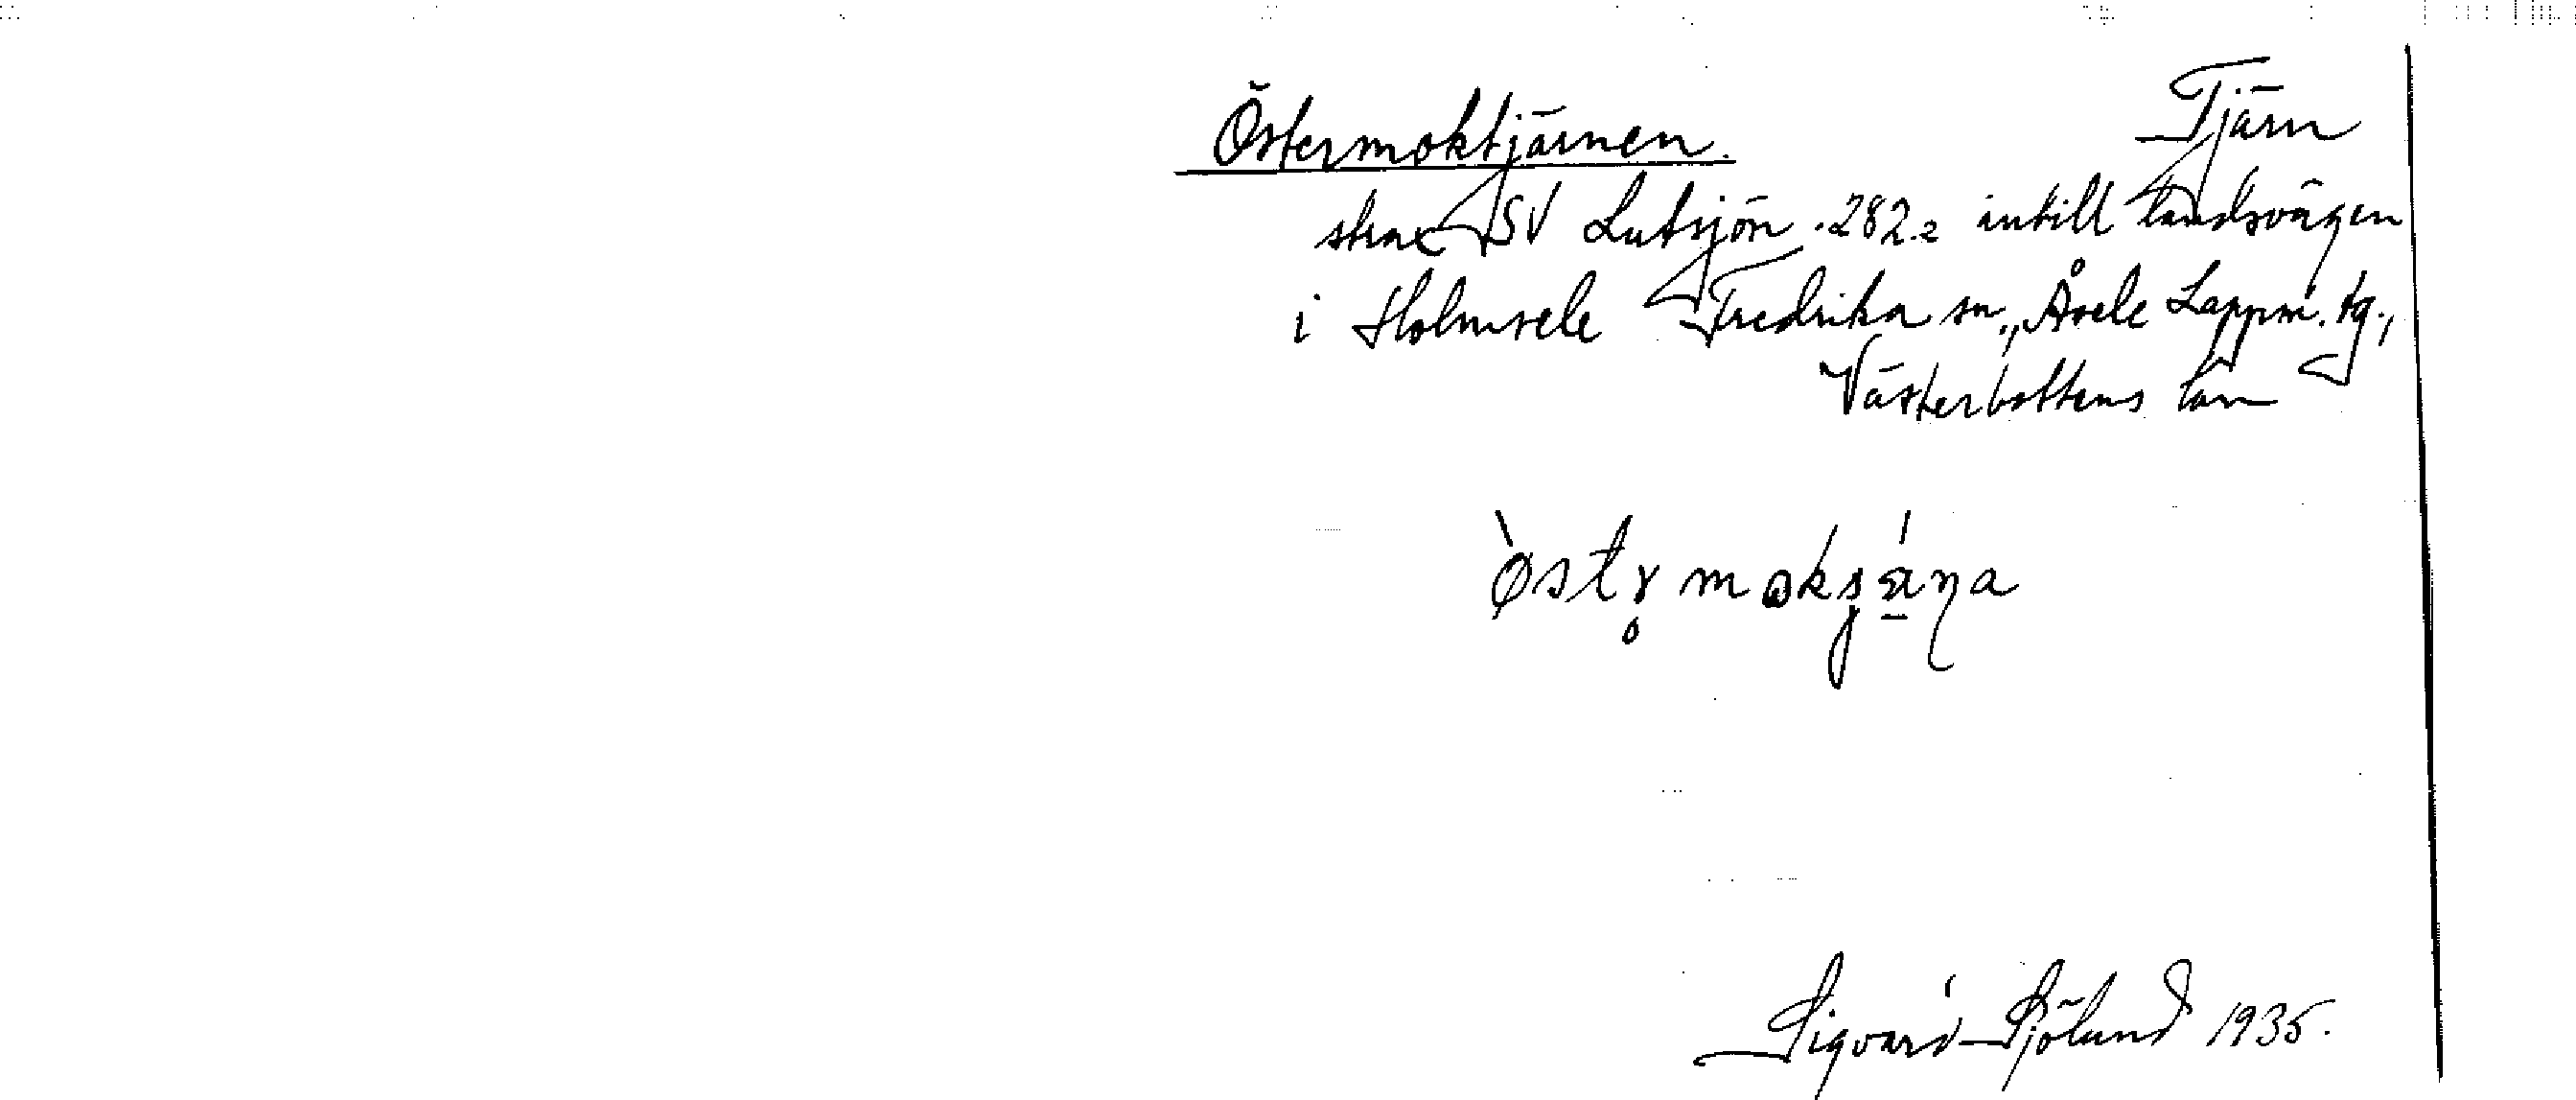 Östermoktjärnen. Tjärn
strax SV Lutsjön 282.2 intill landsvägen
i Holmsele Fredrika sn., Åsele Lappm. tg.,
Västerbottens län
Sigvard Sjölund 1935.